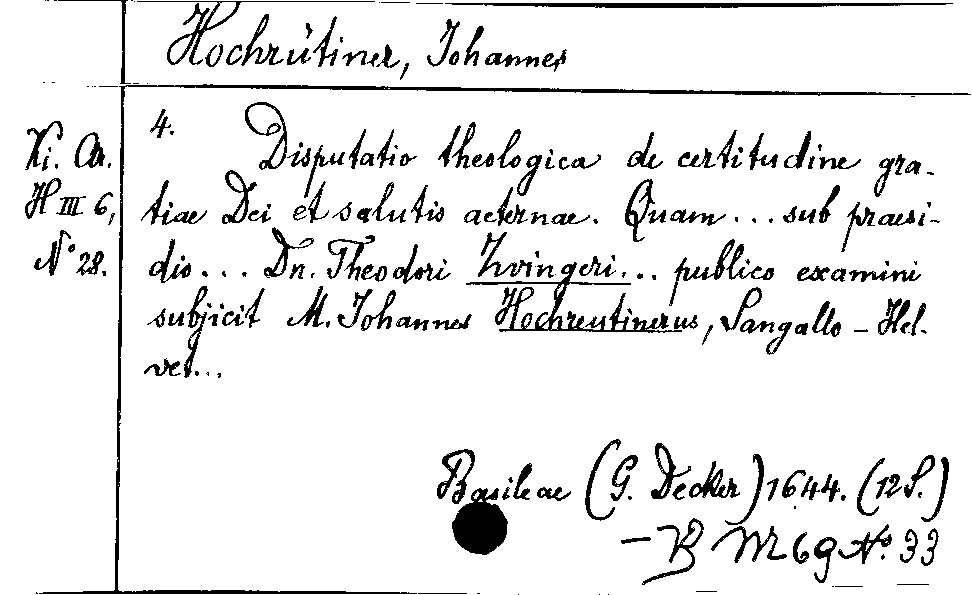 Hochrütiner, Johannes
4.
Ki. Ar.
H III 6,
N° 28.
Disputatio theologica de certitudine gra-
tiae Dei et salutis aeternae. Quam... sub praesi-
dio... Dn. Theodori Zvingeri... publico examini
subjicit M. Johannes Hochreutinerus, Sangallo-Hel-
vet...
Basileae (G. Decker) 1644. (12 S.)
— N° 33